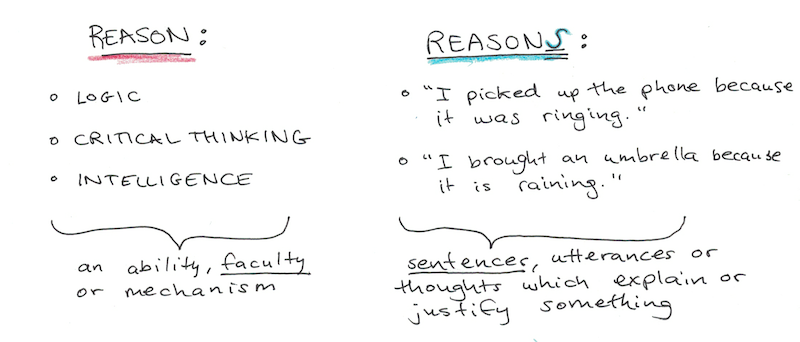 REASON:
○ LOGIC
○ CRITICAL THINKING
○ INTELLIGENCE
an ability, faculty
or mechanism
REASONS:
○ "I picked up the phone because
it was ringing."
○ "I brought an umbrella because
it is raining."
sentences, utterances or
thoughts which explain or
justify something